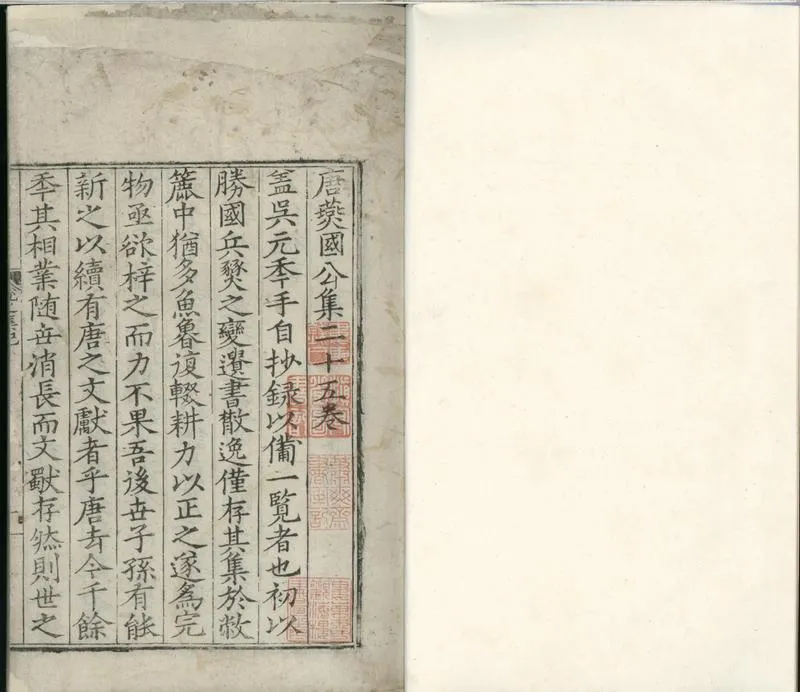 唐燕國公集二十五卷
盖吳元秊手自抄録以備一覽者也初以
勝國兵燹之變遺書散逸僅存其集於敝
簏中猶多魚魯復輟耕力以正之遂爲完
物亟欲梓之而力不果吾後世子孫有能
新之以續有唐之文獻者乎唐去今千餘
秊其相業随世消長而文獻存然則世之